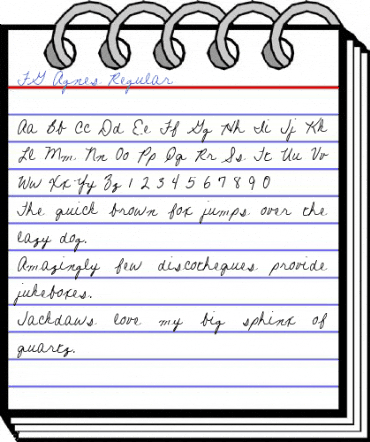 FG Agnes Regular
Aa Bb Cc Dd Ee Ff Gg Hh Ii Jj Kk
Ll Mm Nn Oo Pp Qq Rr Ss Tt Uu Vv
Ww Xx Yy Zz 1 2 3 4 5 6 7 8 9 0
The quick brown fox jumps over the
lazy dog.
Amazingly few discotheques provide
jukeboxes.
Jackdaws love my big sphinx of
quartz.